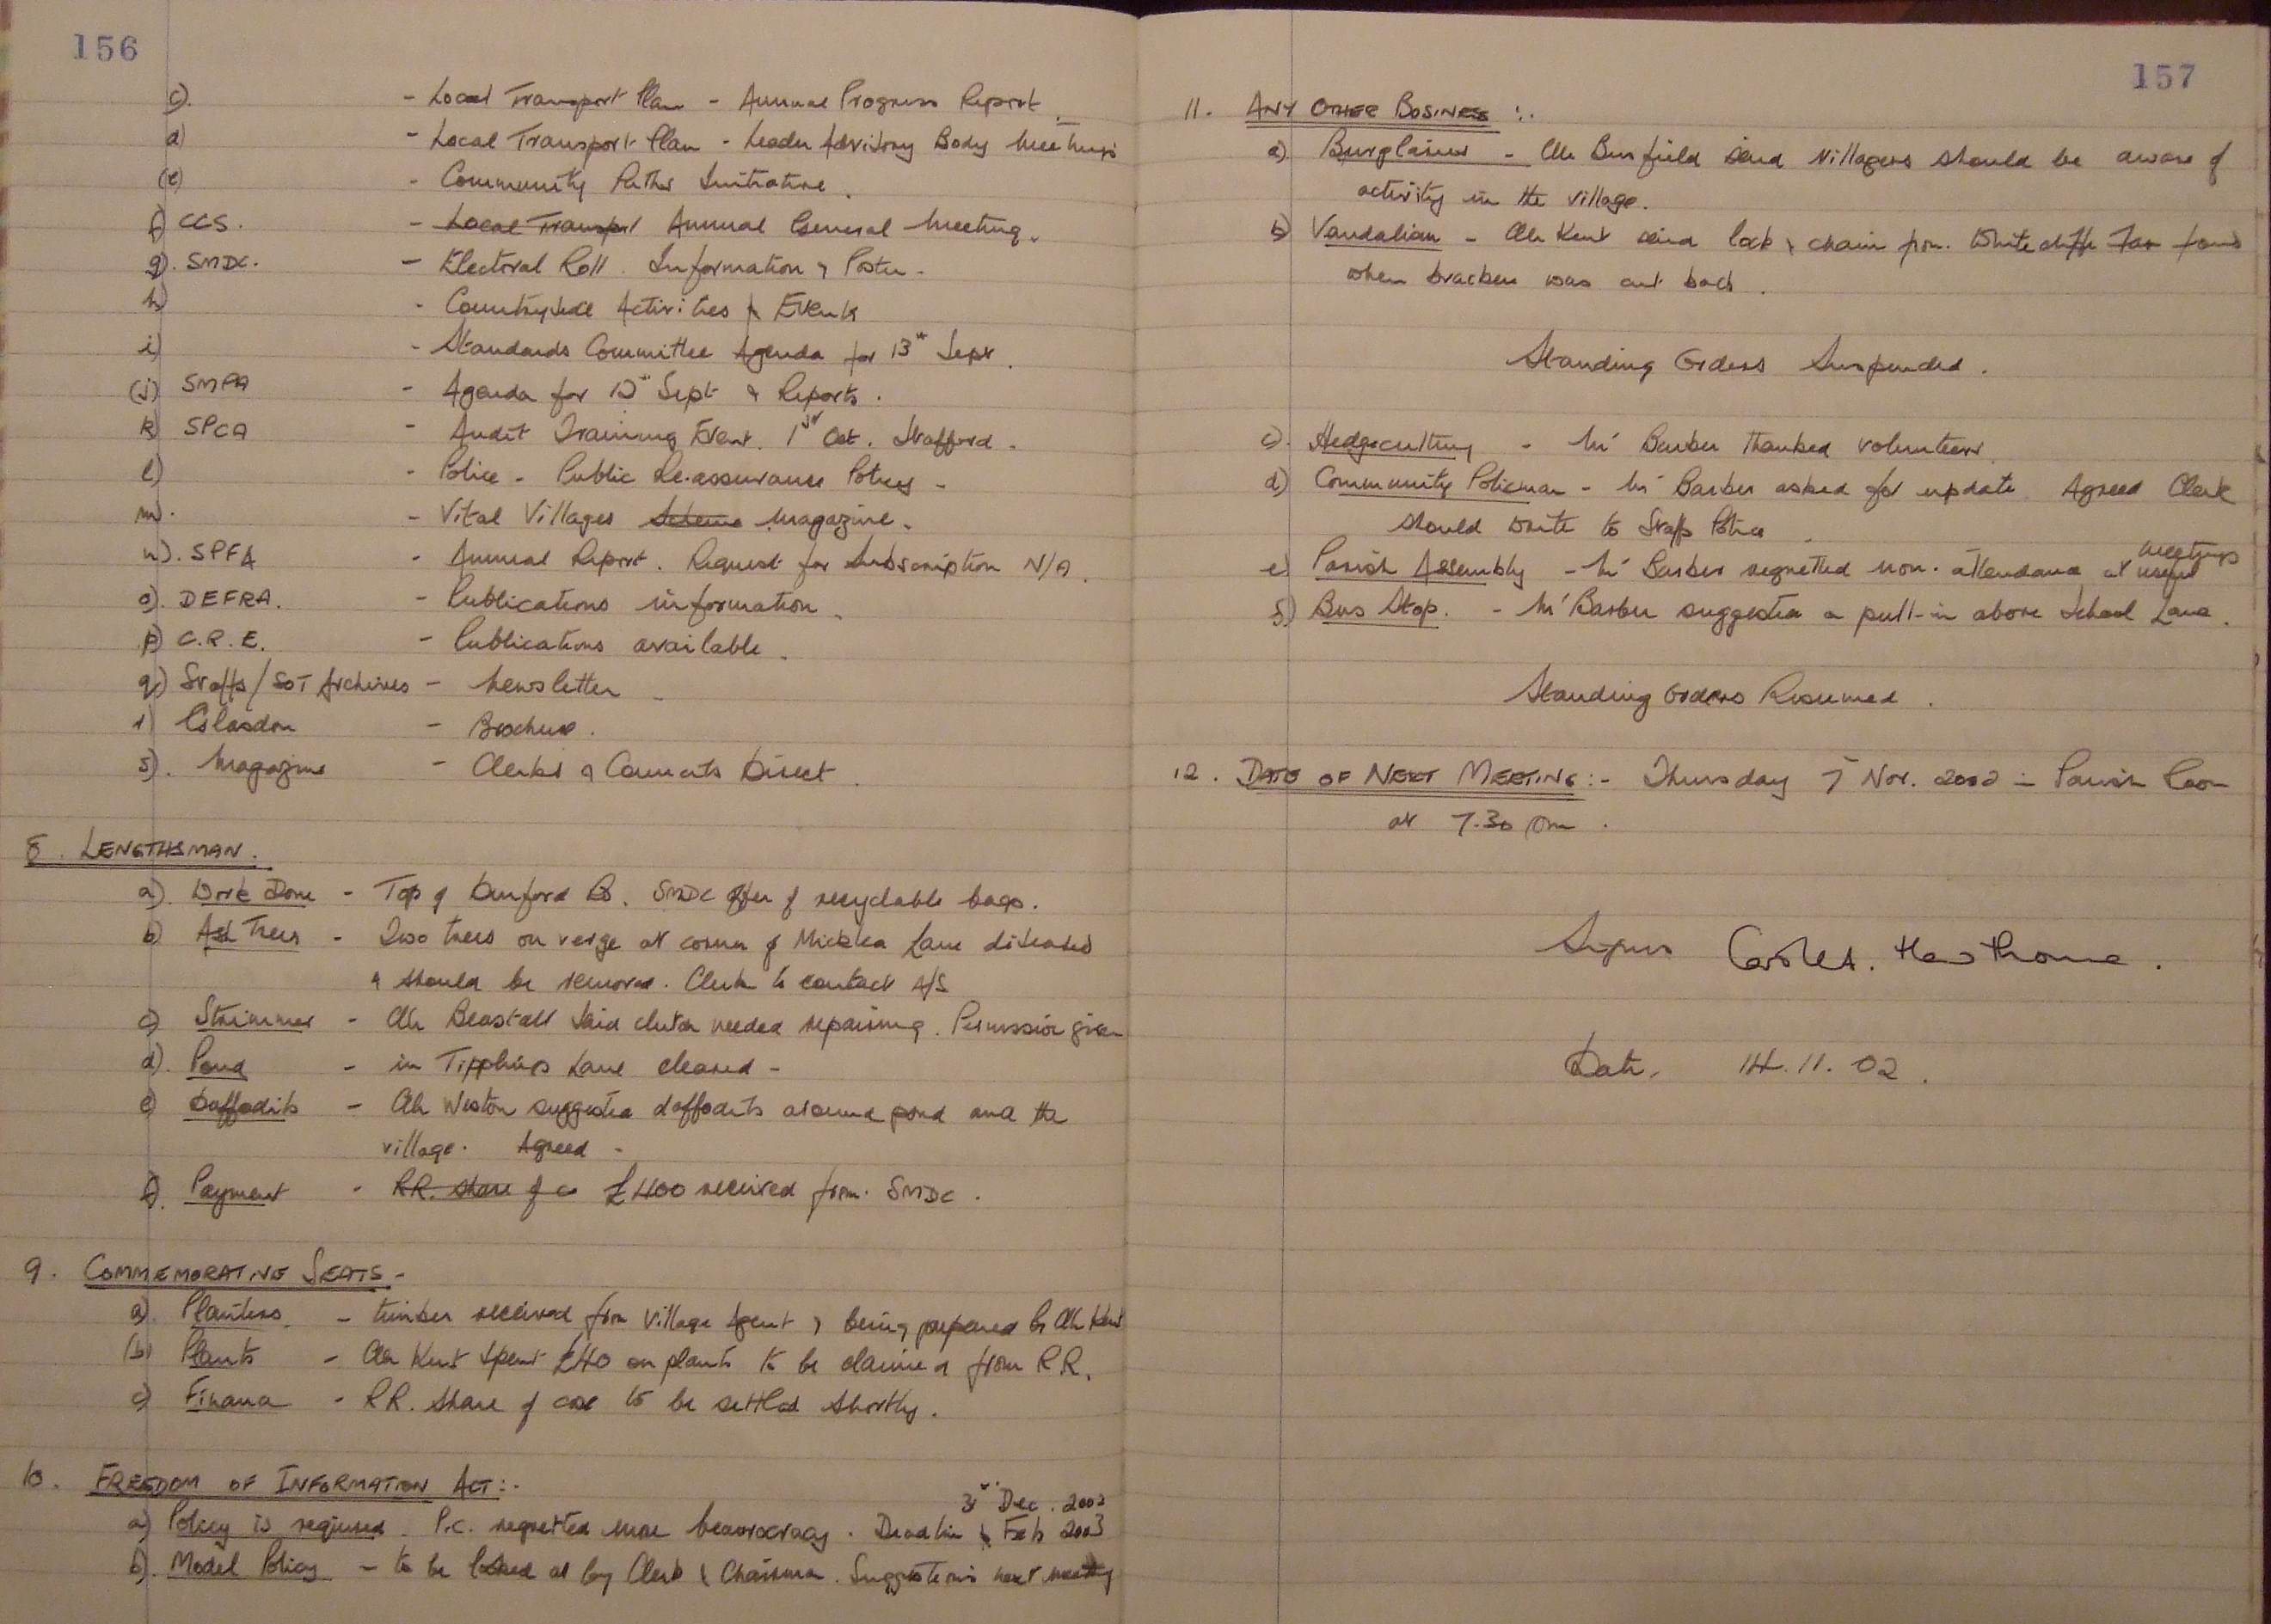 156
c) - Local Transport Plan - Annual Progress Report.
d) - Local Transport Plan - Leader Advisory Body Meetings
(e) - Community Paths Initiative.
f) CCS. - Local Transport Annual General Meeting.
g). SMDC. - Electoral Roll. Information & Poster -
h) - Countryside Activities & Events
i) - Standards Committee Agenda for 13th Sept.
(j) SMPA - Agenda for Sept & Reports.
k) SPCA - Audit Training Event. 1st Oct. Stafford -
l) - Police - Public Re-assurance Policy -
m). - Vital Villages Scheme Magazine -
n). SPFA - Annual Report. Request for Subscription N/A.
o). DEFRA. - Publications information -
p) C.R.E. - Publications available -
q) Staffs/SOT Archives - Newsletter -
r) Glasdon - Brochure.
s). Magazine - Clerks & Councils Direct.
8. LENGTHSMAN.
a). Work Done - Top of Dunford Rd. SMDC offer of recyclable bags.
b) Ash Trees - Two trees on verge at corner of Micklea Lane diseased
& should be removed. Clerk to contact A/S
c) Strimmer - Cllr Beastall said clutch needed repairing. Permission given
d). Pond - in Tipplings Lane cleared -
e) Daffodils - Cllr Weston suggested daffodils around pond and the
village. Agreed -
f). Payment - RR. share of co £400 received from. SMDC.
9. COMMEMORATIVE SEATS -
a). Planters - timber received from Village Agent & being prepared by Cllr Kent
(b) Plants - Cllr Kent spent £40 on plants to be claimed from RR.
c) Finance - RR. share of cost to be settled shortly.
10. FREEDOM OF INFORMATION ACT:-
31st Dec. 2002
a) Policy is required. P.C. regretted more beaurocracy. Deadline Feb 2003
b). Model Policy - to be looked at by Clerk & Chairman. Suggestions next meeting
157
11. ANY OTHER BUSINESS :-
a) Burglaries - Cllr Burfield said villagers should be aware of
activity in the village.
b) Vandalism - Cllr Kent said lock & chain from. Whitecliffe found
when bracken was cut back.
Standing Orders Suspended.
c). Hedgecutting - Mr Barber thanked volunteers.
d) Community Policeman - Mr Barber asked for update. Agreed Clerk
should write to Staffs Police.
e) Parish Assembly - Mr Barber regretted non-attendance at useful meetings
f) Bus Stop. - Mr Barber suggested a pull-in above School Lane.
Standing Orders Resumed.
12. DATE OF NEXT MEETING:- Thursday 7 Nov. 2002 - Parish Room
at 7.30 pm.
Signed Hawthorne.
Date. 14. 11. 02.